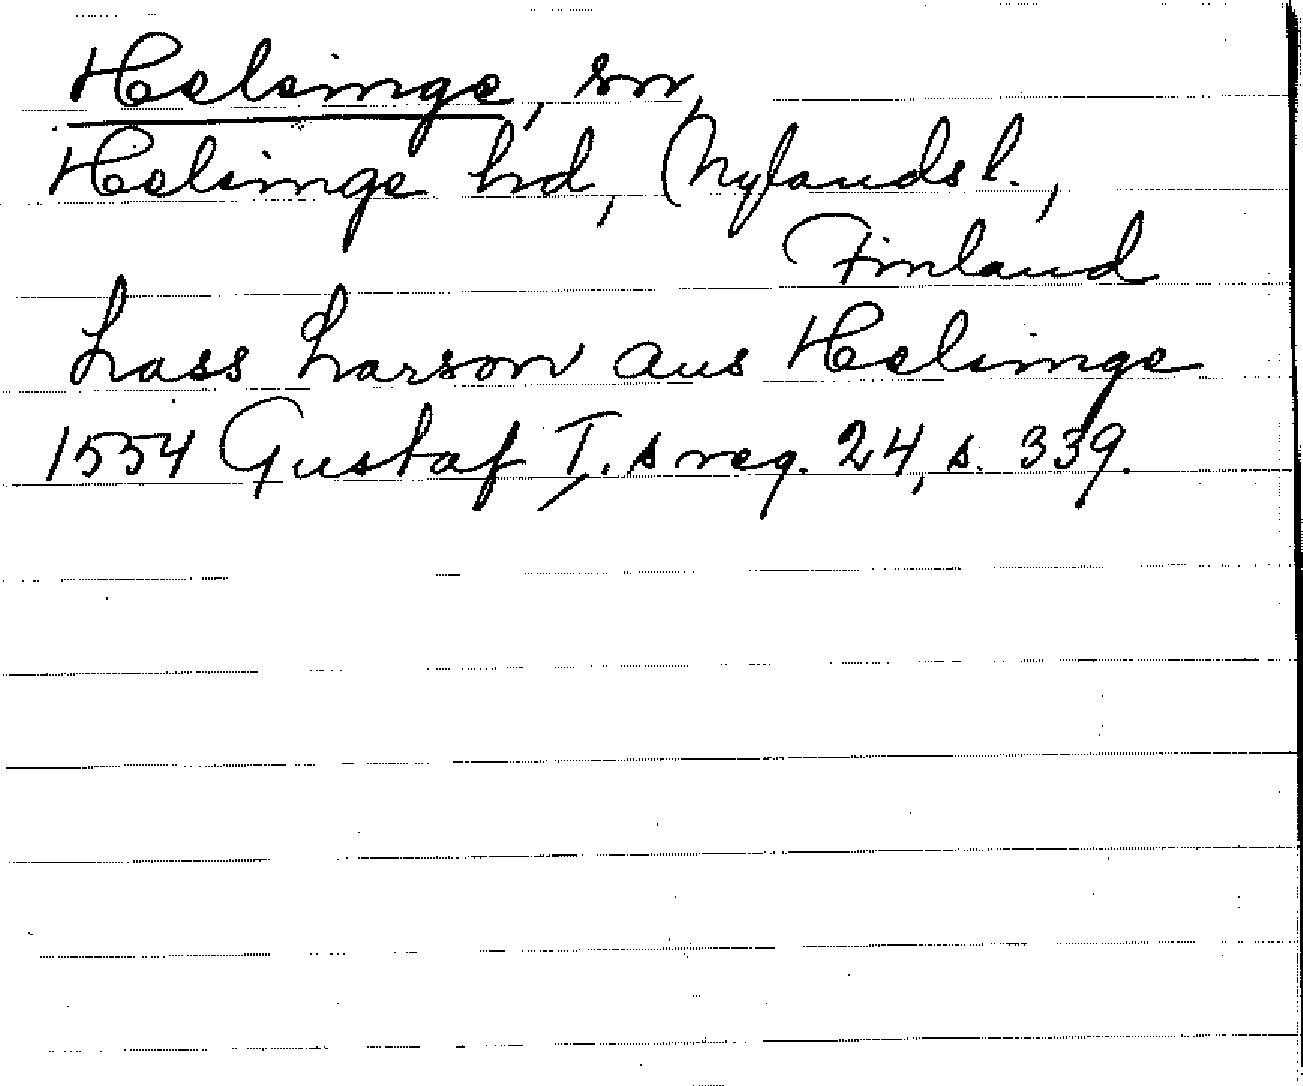 Helsinge, sn,
Helsinge hd, Nylands l.,
Finland
Lass Larson aus Helsinge
1554 Gustaf I.s reg. 24, s. 339.